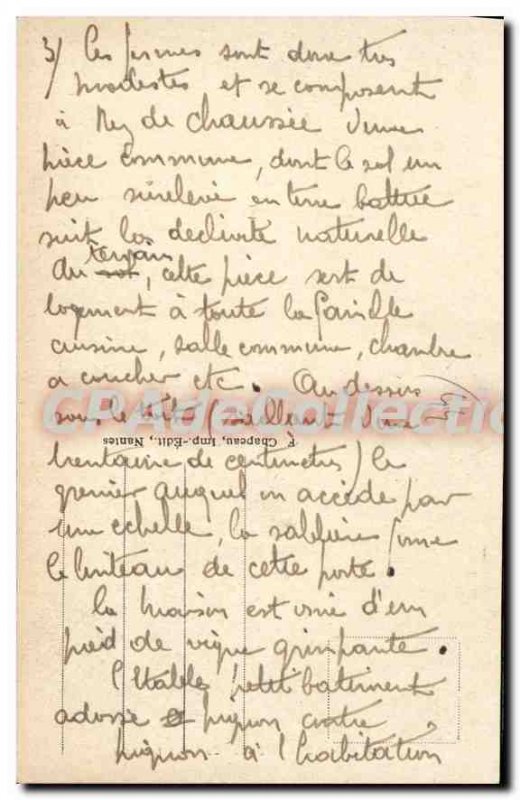 3/ Ces fermes sont donc très
modestes et se composent
à Rez de chaussée d'une
pièce commune, dont le sol un
peu surelevé en terre battue
suit la declivité naturelle
du terrain, cette pièce sert de
logement à toute la famille
cuisine, salle commune, chambre
a coucher etc. Au dessus
sous le toit (saillant d'une
trentaine de centimetres) le
grenier auquel on accède par
une echelle, la sablière forme
le linteau de cette porte.
la maison est ornée d'un
pied de vigne grimpante.
l'Etable petit batiment
adossé pignon contre
pignon à l'habitation
F. Chapeau, Imp.-Edit., Nantes
CPADeCollection